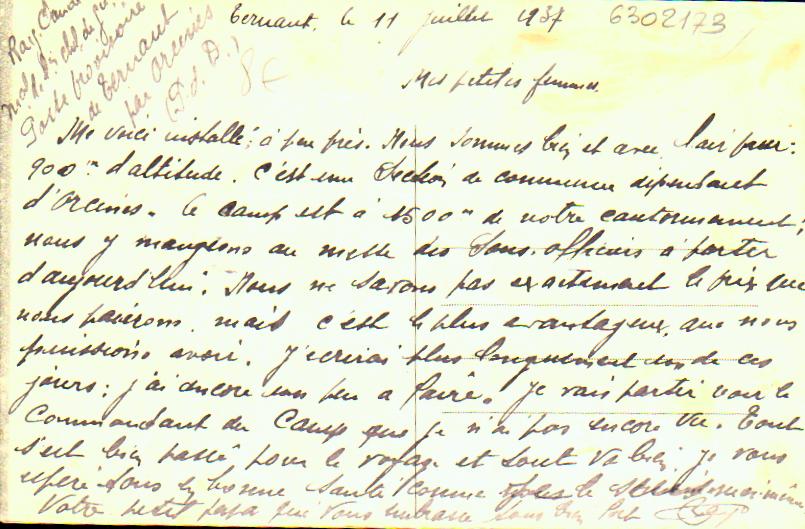 Ternant. le 11 juillet 1937 6302173
Poste provisoire
de Ternant
par Orcines
(P. d. D.)
Mes petites femmes.
Me voici installé, à peu près. Nous sommes bien et avec l'air pur:
900 m d'altitude. C'est une Section de commune dépendant
d'Orcines. Le camp est à 1500 m de notre cantonnement;
nous y mangeons au mess des Sous-officiers à partir
d'aujourd'hui. Nous ne savons pas exactement le prix que
nous paierons, mais c'est le plus avantageux que nous
puissions avoir. J'écrirai plus longuement un de ces
jours; j'ai encore un peu à faire. Je vais partir voir le
Commandant du Camp que je n'ai pas encore vu. Tout
s'est bien passé pour le voyage et tout va bien. Je vous
espère tous en bonne santé comme je le suis moi-même
Votre petit papa qui vous embrasse tous bien fort